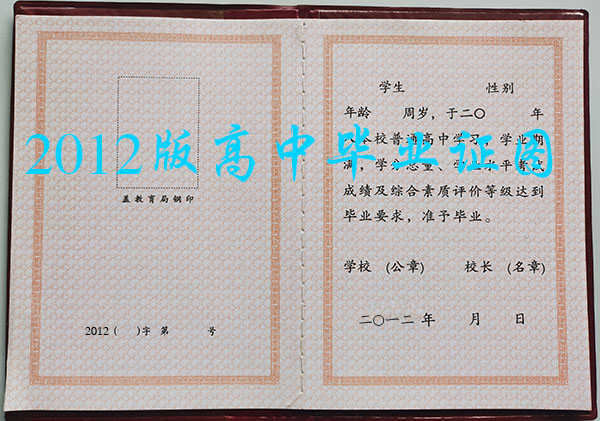 盖教育局钢印
2012 (   )字 第   号
学生   性别
年龄   周岁，于二〇   年
本校普通高中学习，学业期
满，学分总量、学业水平考试
成绩及综合素质评价等级达到
毕业要求，准予毕业。
学校 (公章)   校长 (名章)
二〇一二 年   月   日
2012版高中毕业证图